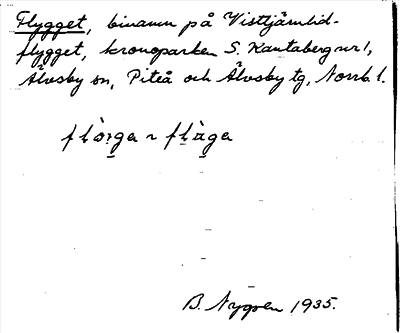 Flygget, binamn på Visttjärnlid-
flygget, kronoparken S. Kantaberg nr 1,
Älvsby sn, Piteå och Älvsby tg, Norrb. l.
B. Nygren 1935.